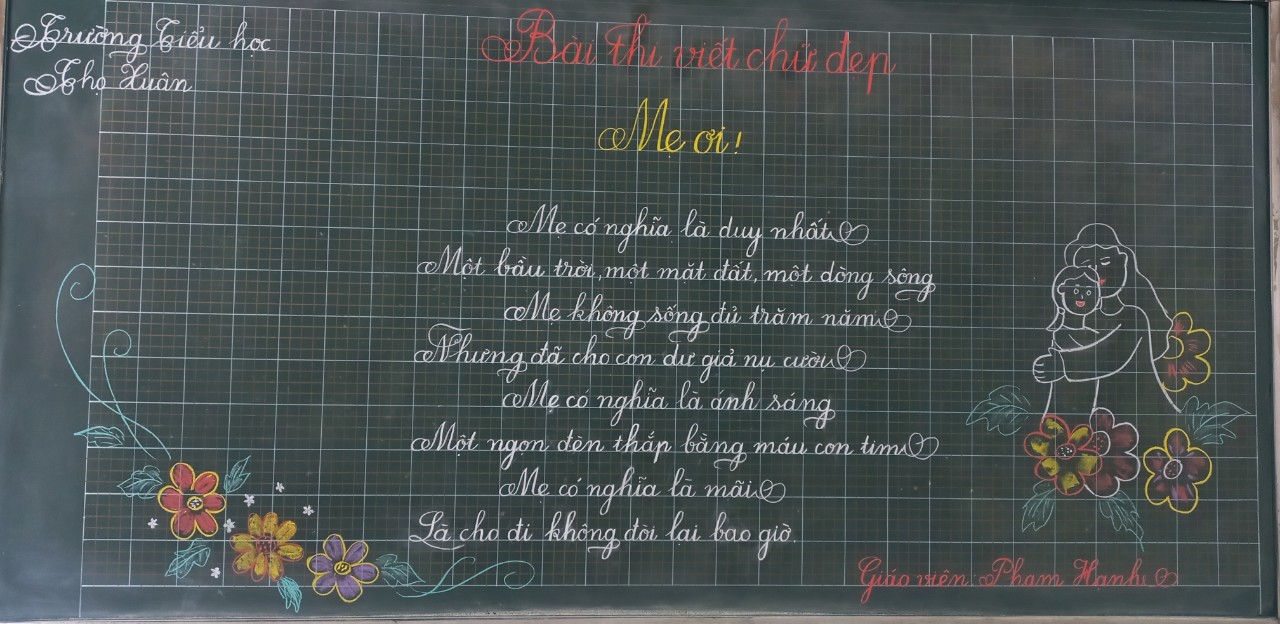 Trường Tiểu học
Thọ Xuân
Bài thi viết chữ đẹp
Mẹ ơi!
Mẹ có nghĩa là duy nhất
Một bầu trời, một mặt đất, một dòng sông
Mẹ không sống đủ trăm năm
Nhưng đã cho con dư giả nụ cười
Mẹ có nghĩa là ánh sáng
Một ngọn đèn thắp bằng máu con tim
Mẹ có nghĩa là mãi
Là cho đi không đòi lại bao giờ.
Giáo viên: Phạm Hạnh